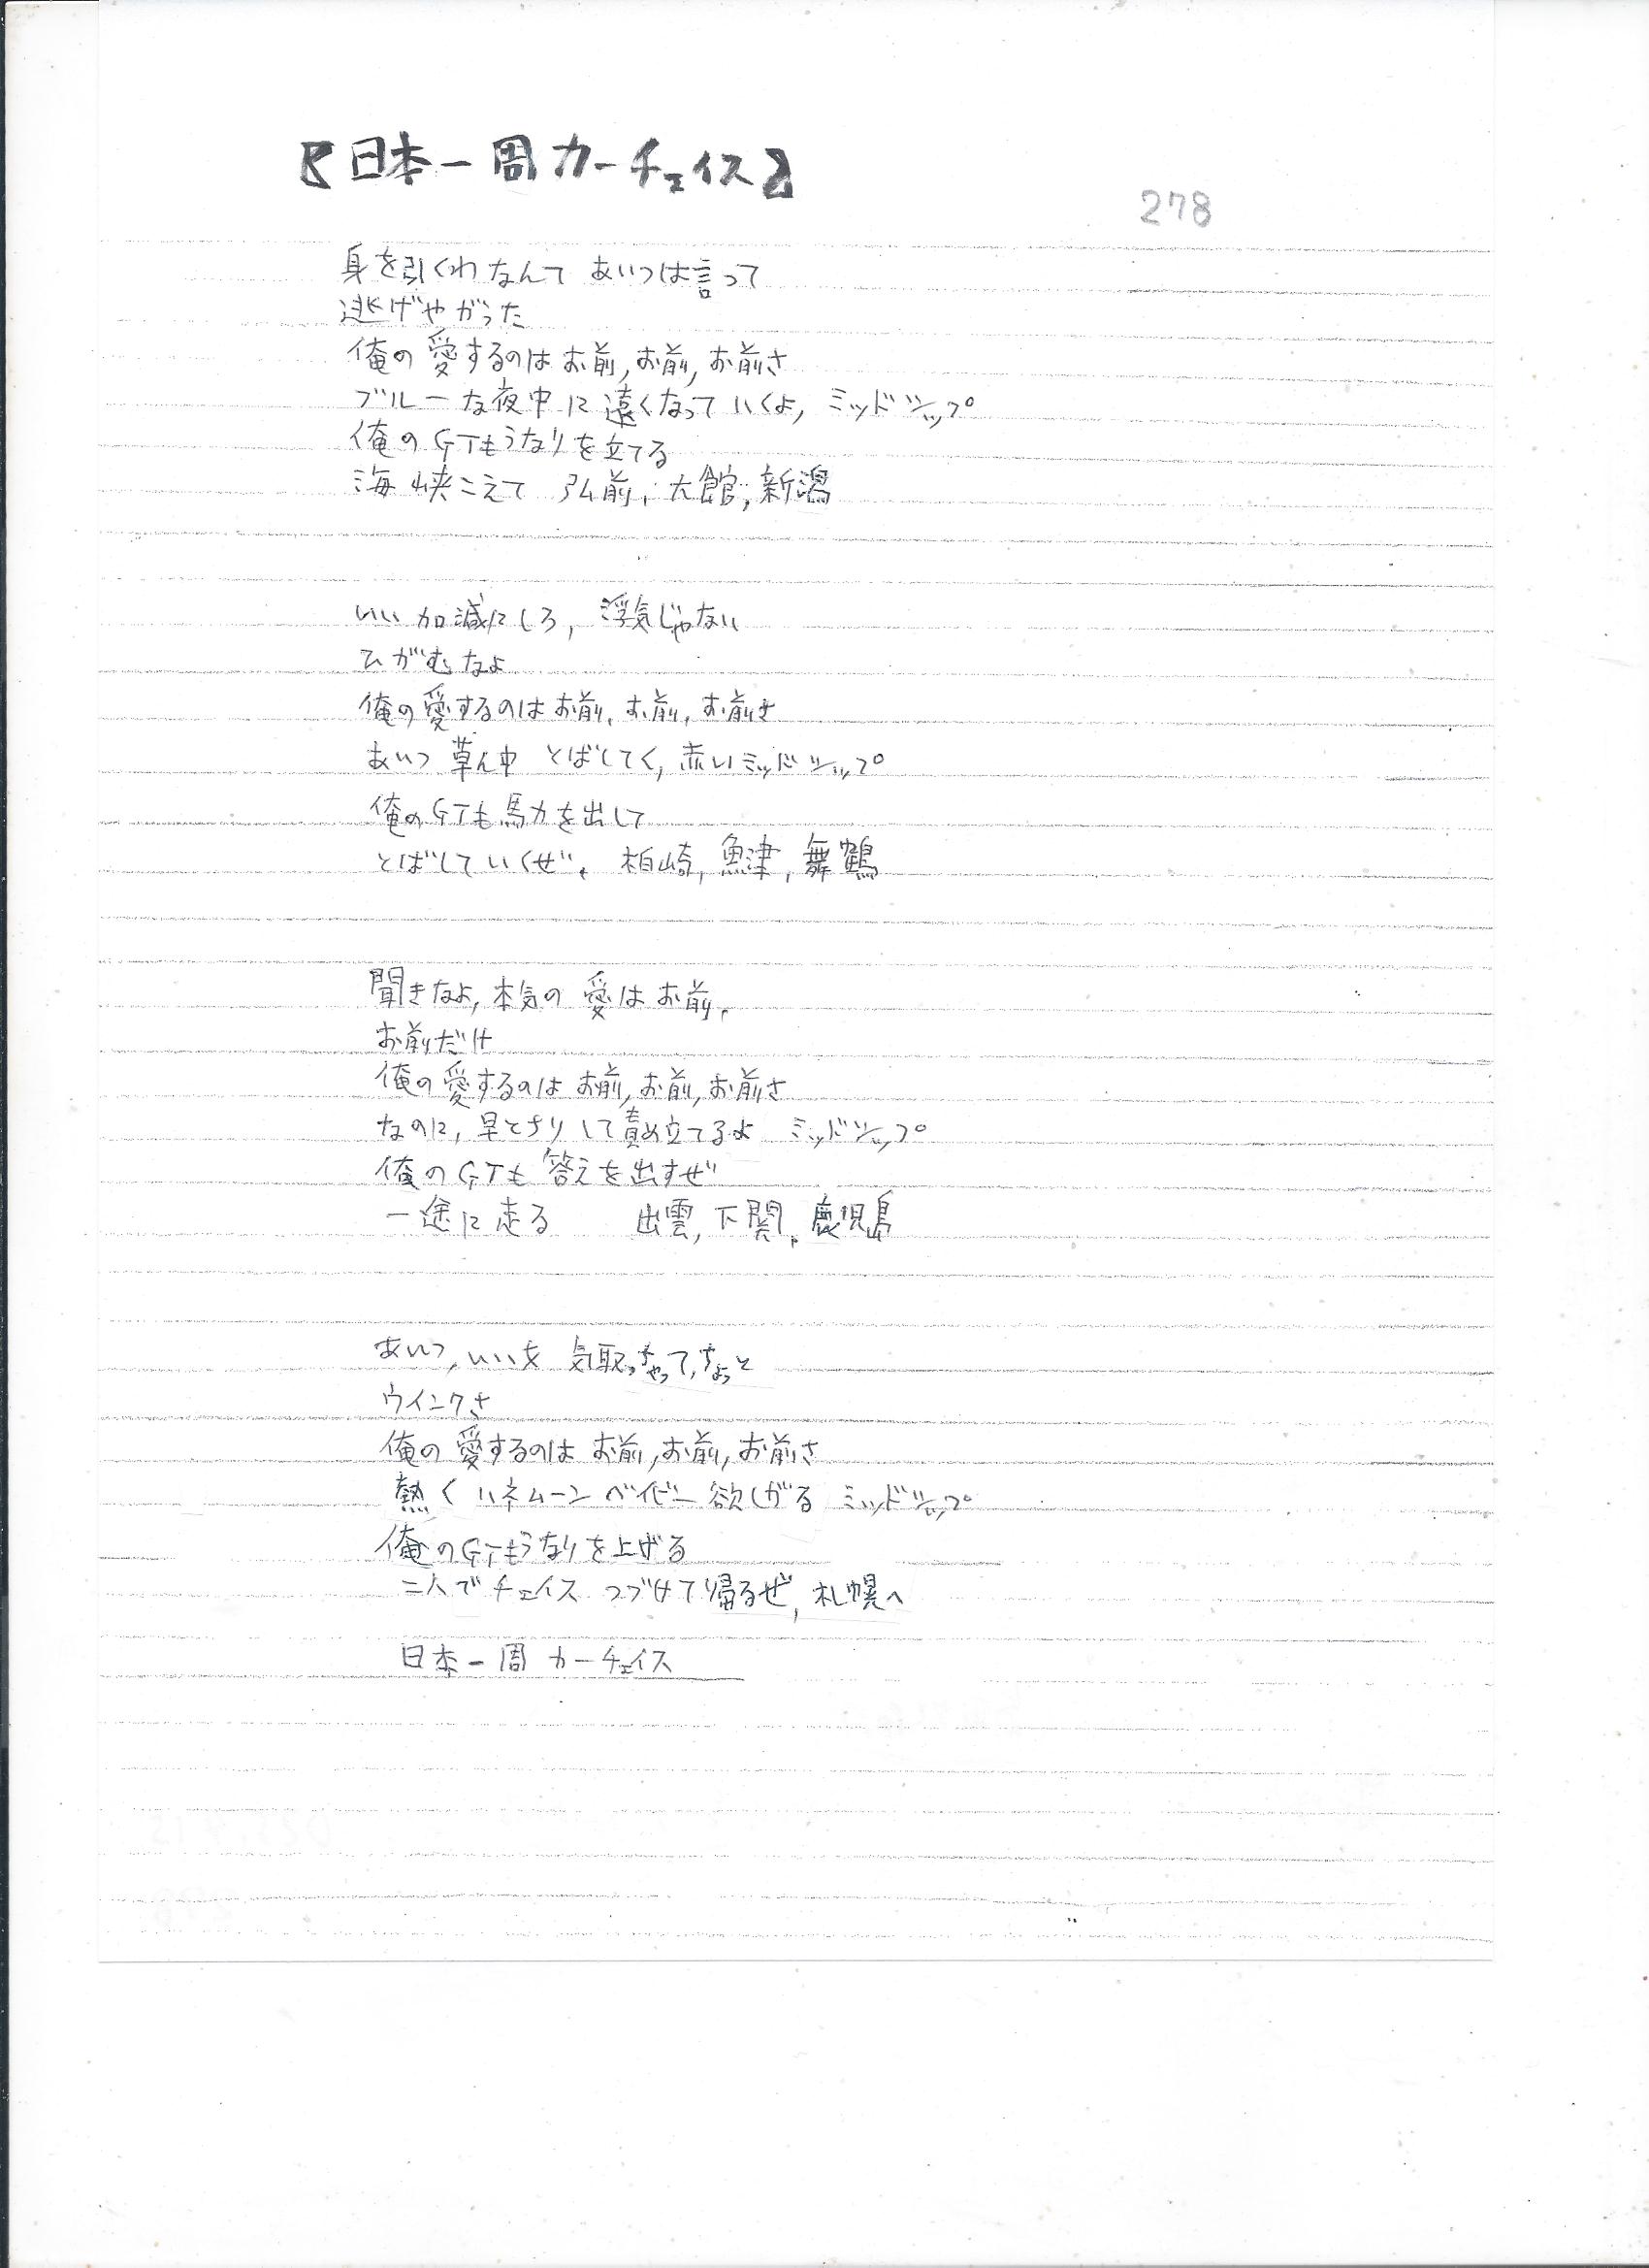 【日本一周カーチェイス】
278
身を引くわなんて あいつは言って
逃げやがった
俺の愛するのはお前,お前,お前さ
ブルーな夜中に遠くなっていくよ,ミッドシップ
俺のGTもうなりを立てる
海峡こえて 弘前,大館,新潟
いい加減にしろ,浮気じゃない
ひがむなよ
俺の愛するのはお前,お前,お前さ
あいつ草ん中 とばしてく,赤いミッドシップ
俺のGTも馬力を出して
とばしていくぜ,柏崎,魚津,舞鶴
聞きなよ,本気の愛はお前,
お前だけ
俺の愛するのはお前,お前,お前さ
なのに,早とちりして責め立てるよ ミッドシップ
俺のGTも答えを出すぜ
一途に走る 出雲,下関,鹿児島
あいつ,いい女 気取っちゃって,ちょっと
ウインクさ
俺の愛するのはお前,お前,お前さ
熱くハネムーンベイビー欲しがる ミッドシップ
俺のGTもうなりを上げる
二人でチェイス つづけて帰るぜ,札幌へ
日本一周カーチェイス